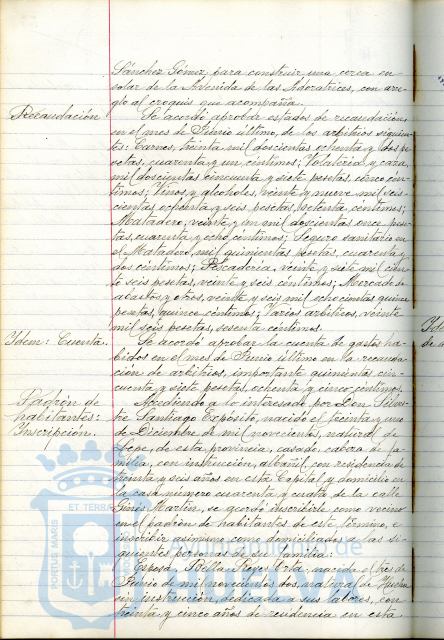 Sánchez Gómez, para construir una cerca en
solar de la Avenida de las Adoratrices, con arre-
glo al croquis que acompaña.
Recaudación
Se acordó aprobar estados de recaudación,
en el mes de Junio último, de los arbitrios siguien-
tes: Carnes, treinta mil doscientas ochenta y dos pe-
setas, cuarenta y un céntimos; Volatería y caza,
mil doscientas cincuenta y siete pesetas, cinco cén-
timos; Vinos y alcoholes, veinte y nueve mil seis-
cientas ochenta y seis pesetas, setenta céntimos;
Matadero, veinte y un mil doscientas once pese-
tas, cuarenta y ocho céntimos; Seguro sanitario en
el Matadero, mil quinientas pesetas, cuarenta y
dos céntimos; Pescadería, veinte y siete mil cien-
to seis pesetas, veinte y seis céntimos; Mercado de
abastos y otros, veinte y seis mil ochocientas quince
pesetas, quince céntimos; Varios arbitrios, veinte
mil seis pesetas, sesenta céntimos.
Idem: Cuenta.
Se acordó aprobar la cuenta de gastos ha-
bidos en el mes de Junio último en la recauda-
ción de arbitrios, importante quinientas cin-
cuenta y siete pesetas, ochenta y cinco céntimos.
Padrón de
habitantes:
Inscripción.
Accediendo a lo interesado por Don Silves-
tre Santiago Expósito, nacido el treinta y uno
de Diciembre de mil novecientos, natural de
Lepe, de esta provincia, casado, cabeza de fa-
milia, con instrucción, albañil, con residencia de
treinta y seis años en esta Capital y domicilio en
la casa número cuarenta y cuatro de la calle
Ginés Martín, se acordó inscribirle como vecino
en el padrón de habitantes de este término, e
inscribir asimismo como domiciliados a las si-
guientes personas de su familia:
Esposa, Bella Reyes Orta, nacida el tres de
Junio de mil novecientos dos, natural de Huelva
sin instrucción, dedicada a sus labores, con
treinta y cinco años de residencia en esta
PORTUS MARIS ET TERRAE
Ayuntamiento de